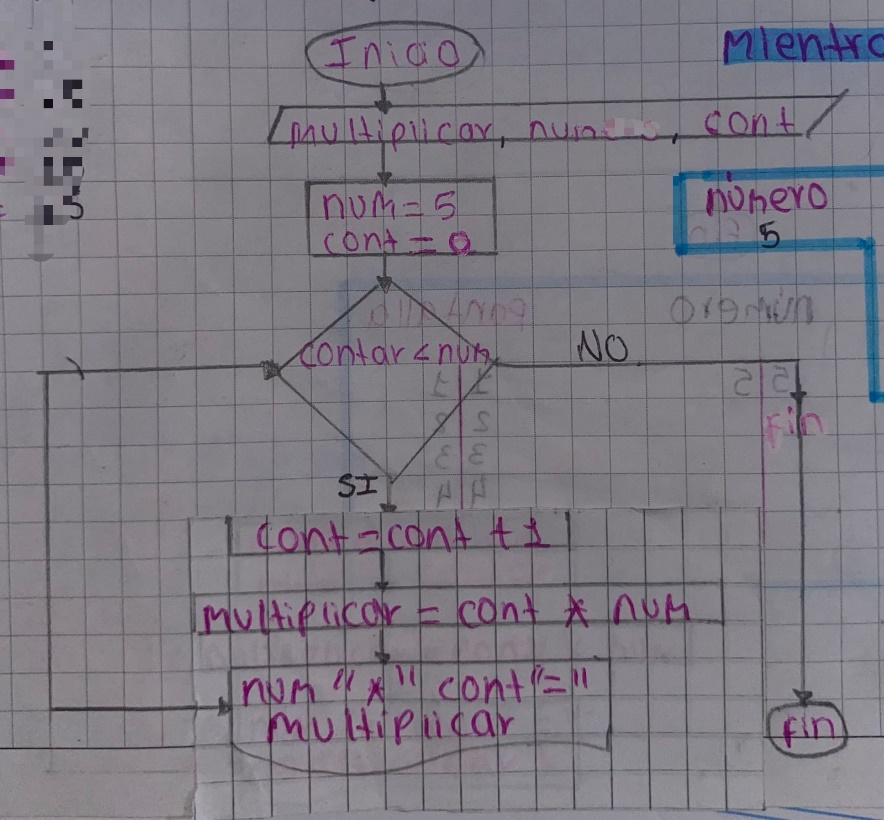 Inicio
Mientra
multiplicar, num , cont
5
num = 5
cont = 0
número
5
contar < num
NO
Fin
SI
cont = cont + 1
multiplicar = cont * num
num "*" cont "="
multiplicar
fin